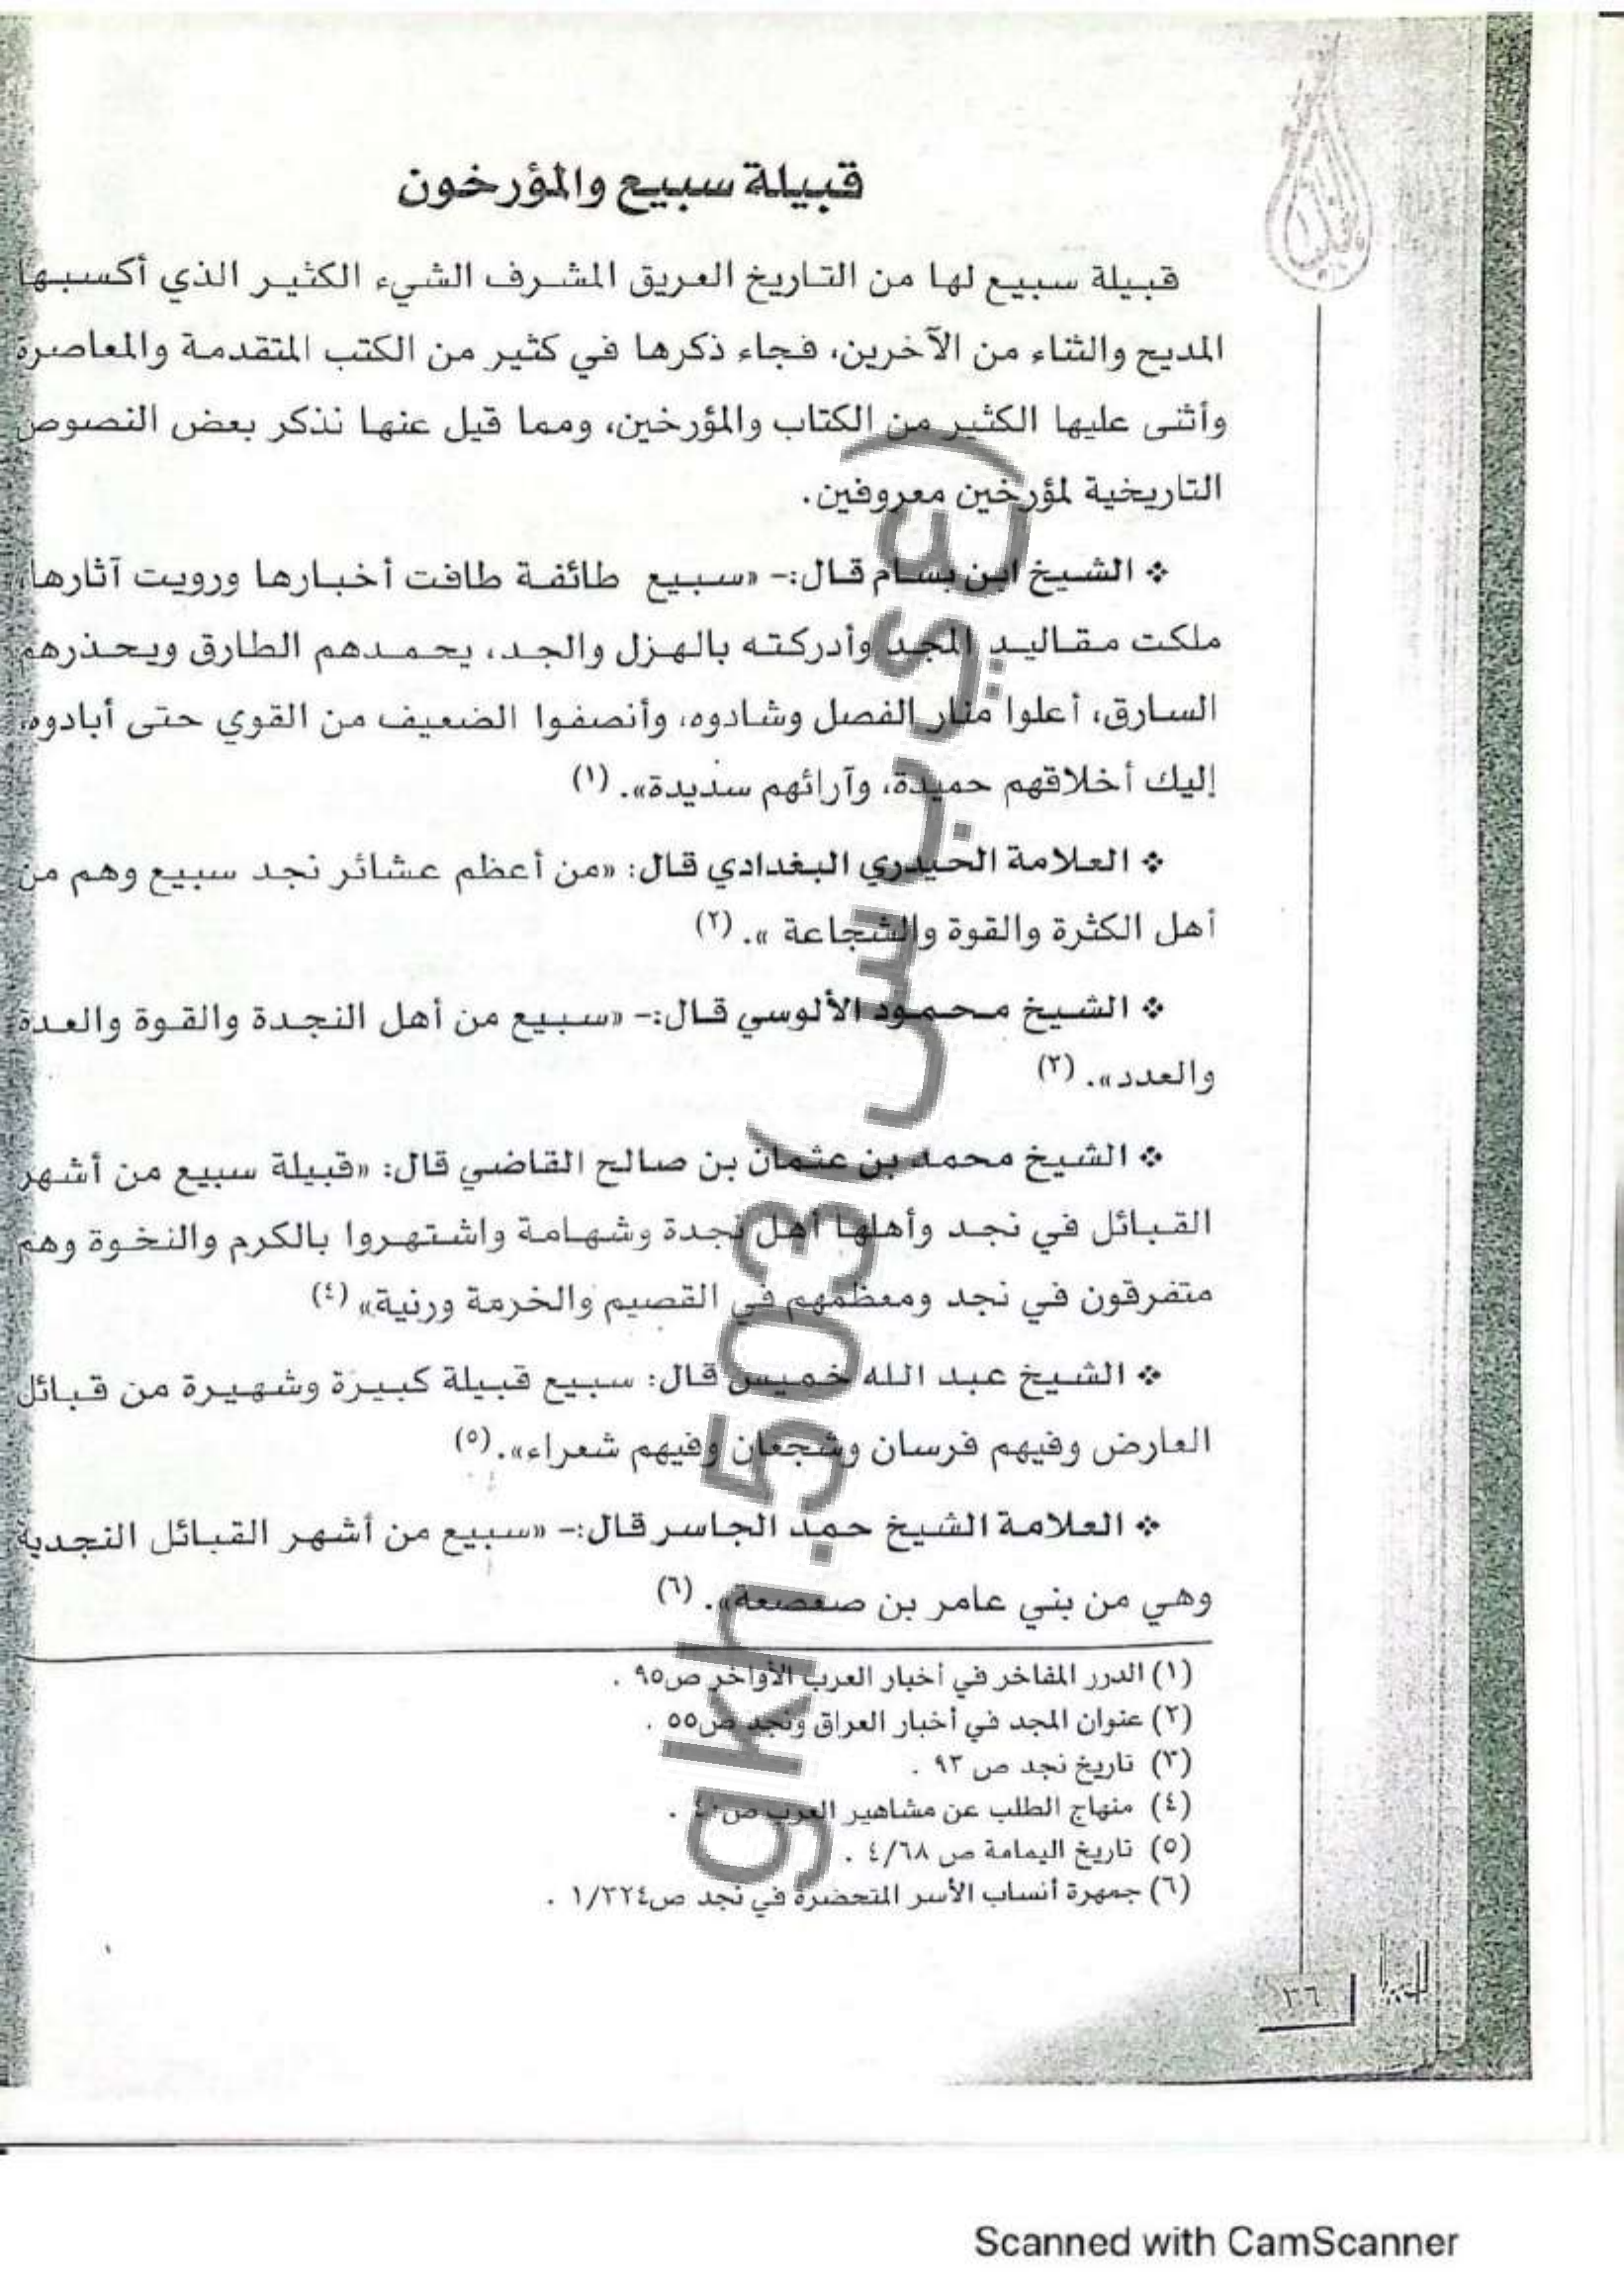 قبيلة سبيع والمؤرخون
قبيلة سبيع لها من التاريخ العريق المشرف الشيء الكثير الذي أكسبها
المديح والثناء من الآخرين، فجاء ذكرها في كثير من الكتب المتقدمة والمعاصرة
وأثنى عليها الكثير من الكتاب والمؤرخين، ومما قيل عنها نذكر بعض النصوص
التاريخية لمؤرخين معروفين.
❖ الشيخ ابن بسام قال:- «سبيع طائفة طافت أخبارها ورويت آثارها،
ملكت مقاليد المجد وأدركته بالهزل والجد، يحمدهم الطارق ويحذرهم
السارق، أعلوا منار الفصل وشادوه، وأنصفوا الضعيف من القوي حتى أبادوه،
إليك أخلاقهم حميدة، وآرائهم سديدة». (١)
❖ العلامة الحيدري البغدادي قال: «من أعظم عشائر نجد سبيع وهم من
أهل الكثرة والقوة والشجاعة ». (٢)
❖ الشيخ محمود الألوسي قال:- «سبيع من أهل النجدة والقوة والعدة
والعدد». (٣)
❖ الشيخ محمد بن عثمان بن صالح القاضي قال: «قبيلة سبيع من أشهر
القبائل في نجد وأهلها أهل نجدة وشهامة واشتهروا بالكرم والنخوة وهم
متفرقون في نجد ومعظمهم في القصيم والخرمة ورنية» (٤)
❖ الشيخ عبد الله خميس قال: سبيع قبيلة كبيرة وشهيرة من قبائل
العارض وفيهم فرسان وشجعان وفيهم شعراء». (٥)
❖ العلامة الشيخ حمد الجاسر قال:- «سبيع من أشهر القبائل النجدية
وهي من بني عامر بن صعصعة». (٦)
(١) الدرر المفاخر في أخبار العرب الأواخر ص٩٥ .
(٢) عنوان المجد في أخبار العراق ونجد ص٥٥ .
(٣) تاريخ نجد ص ٩٣ .
(٤) منهاج الطلب عن مشاهير العرب
(٥) تاريخ اليمامة ص ٤/٦٨ .
(٦) جمهرة أنساب الأسر المتحضرة في نجد ص١/٣٢٤ .
٣٦
gkh.503
Scanned with CamScanner